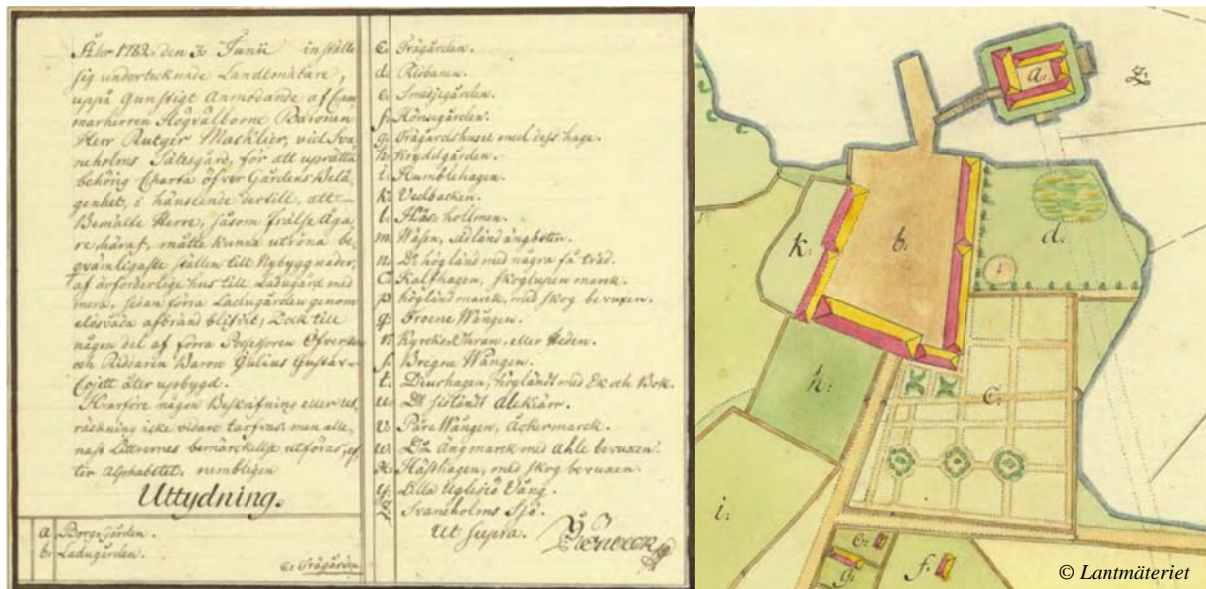 Åhr 1782. den 3. Junii instälte
sig undertecknade Landtmätare,
uppå Gunstigt Anmodande af Cam
marherren Högvälborne Baronen
Herr Rutger Macklier, vid Sva
neholms Sätesgård, för att uprätta
behörig Charta öfver Gårdens Belä,
genhet, i hänseende dertill, att
Bemälte Herre, såsom Frälse äga
re häraf, måtte kunna utröna be,
qvämligaste ställen till Nybyggnader,
af ärforderlige hus till Ladugård med
mera, sedan förra Ladugården genom
elosvåda afbränd blifvit; Dock till
någen del af förra Possessoren Öfversten
och Ridaren Baron Julius Gustav
Cojett åter upbygd.
Hvarföre någen Beskrifning eller ut,
räckning icke vidare tarfvas; men alle,
nast Litternes bemärckellse utföras, ef
ter Alphabetet, nembligen
Uttydning.
a. Borgegården.
b. Ladugården.
c. Trägården
c. Trägården.
d. Ridbanen.
e. Smedjegården.
f. Hönsegården.
g. Trägårdshuset med dess hage.
h. Krydgården.
i. Humblehagen.
k. Vedbacken.
l. hollmen.
m. Wasen, sidländ ängbotten.
n. Do högländ med några få träd.
o. Kalfhagen, skoglupen marck.
p. högländ marck, med skog bevuxen.
q. Froene Wången.
r. Kyrcke eller Heden.
s. Bregne Wången.
t. Deurhagen, högländt med Ek och Bok.
u. Do sidländt alekiärr.
v. Päre Wången, Åckermarck.
w. Do Ängmarck med ahle bevuxen.
x. Hästhagen, med skog bevuxen.
y. Lilla Uglesiö Vång.
z. Svaneholms Sjö.
Ut Supra.
a.
z.
b.
k.
d.
h.
c.
i.
e.
g.
f.
© Lantmäteriet